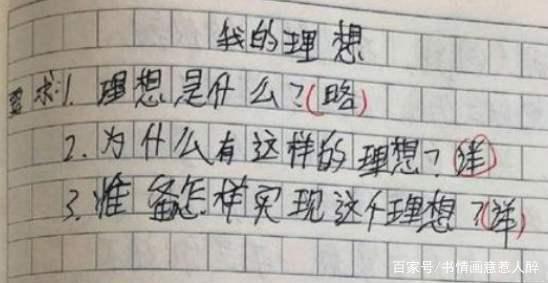 我的理想
要求:1.理想是什么?(略)
2.为什么有这样的理想?(详)
3.准备怎样实现这个理想?(详)
百家号/书情画意惹人醉